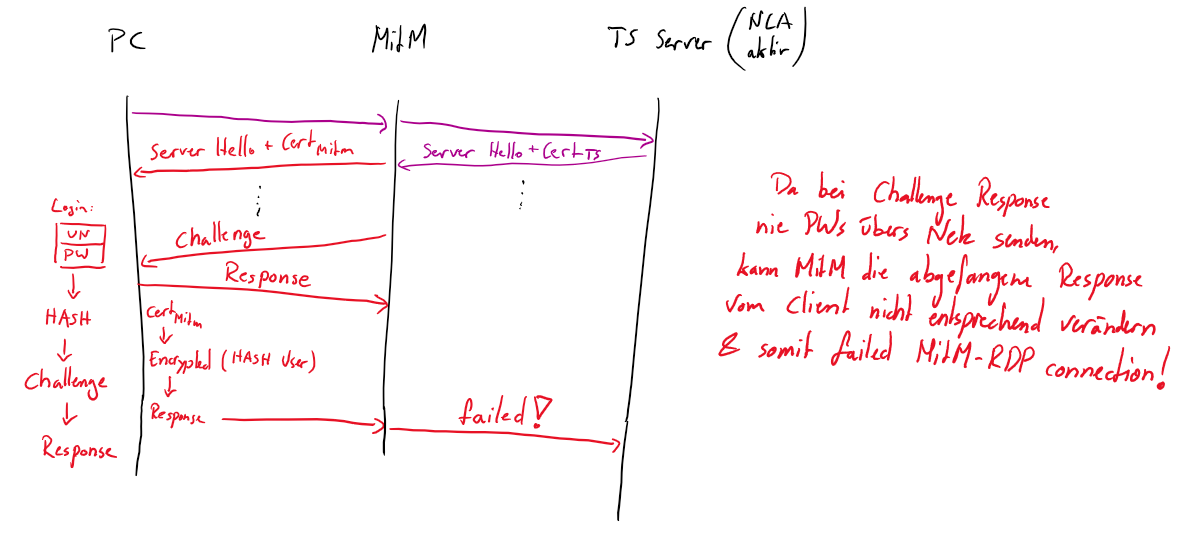 PC
MitM
TS Server (NLA aktiv)
Server Hello + Cert MitM
Server Hello + Cert TS
Login:
UN
PW
Challenge
Response
HASH
Challenge
Response
Cert MitM
Encrypted (HASH User)
Response
failed!
Da bei Challenge Response
nie PWs übers Netz senden,
kann MitM die abgefangene Response
vom Client nicht entsprechend verändern
& somit failed MitM-RDP connection!